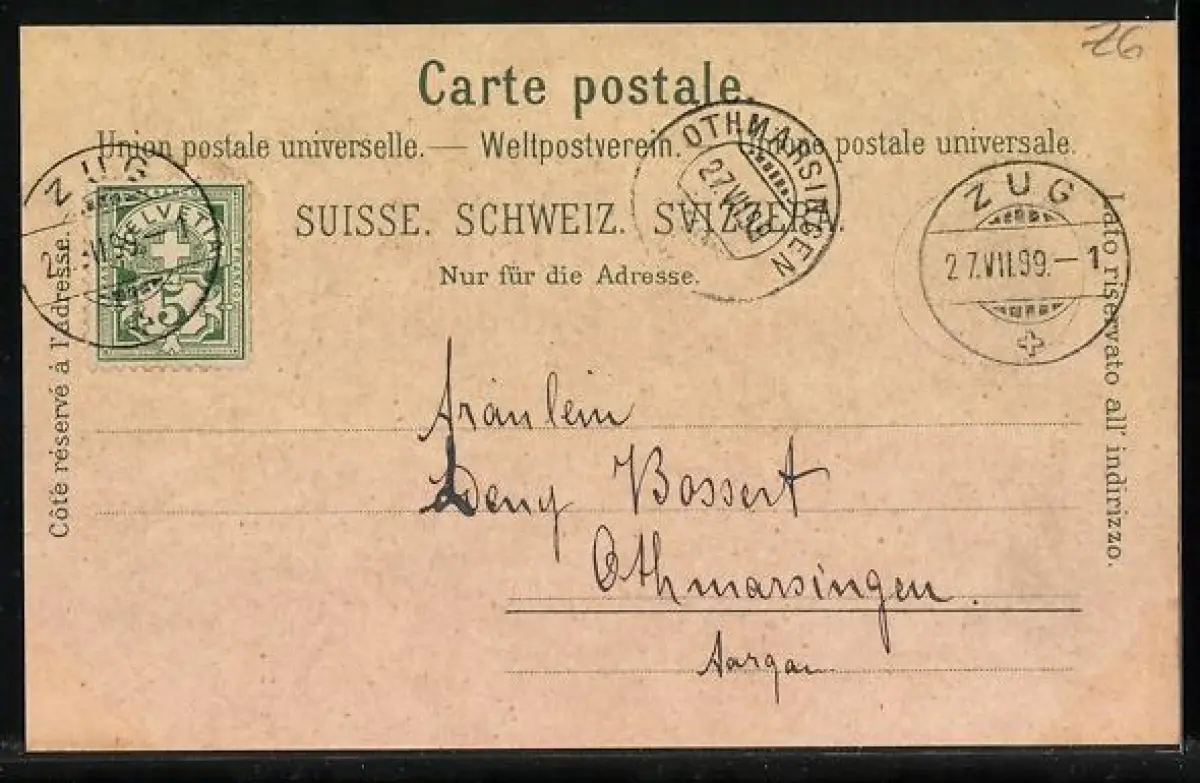 26
Carte postale.
Union postale universelle. — Weltpostverein. Unione postale universale.
SUISSE. SCHWEIZ. SVIZZERA.
Nur für die Adresse.
Côté réservé à l'adresse.
Lato riservato all' indirizzo.
ZUG
HELVETIA
5
OTHMARSINGEN
27.VII.99
ZUG
27.VII.99.–1
Fräulein
Bossert
Othmarsingen.
Aargau